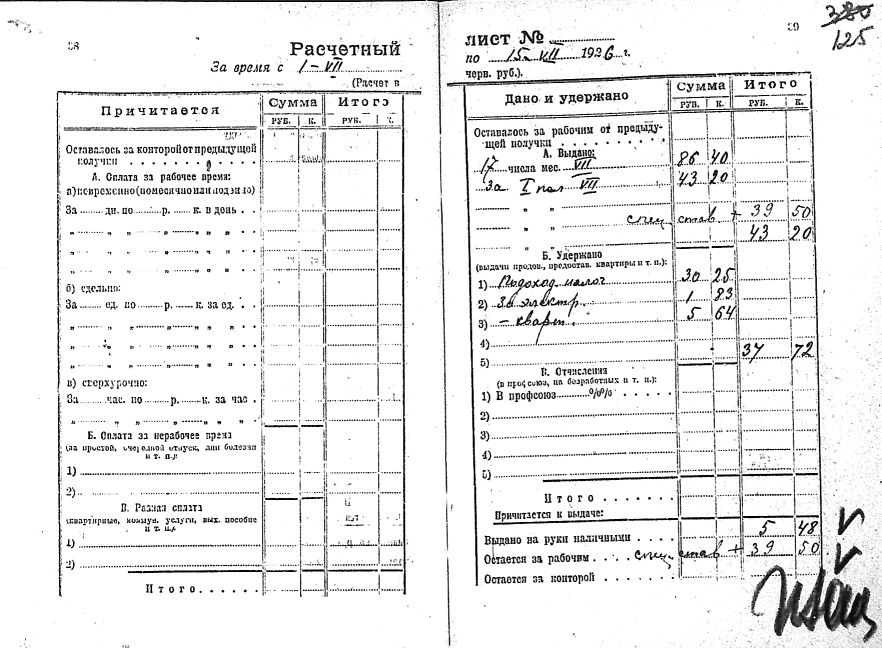 38
Расчетный
За время с 1 – VII
(Расчет в
Причитается
Сумма
Итого
РУБ. К. РУБ. К.
Оставалось за конторой от предыдущей
получки . . . . . . . .
А. Оплата за рабочее время:
а) повременно (помесячно или поденно)
За ........ дн. по ........ р. ...... к. в день . .
„ ........ „ „ ........ „ ...... „ „ „ . .
„ ........ „ „ ........ „ ...... „ „ „ . .
„ ........ „ „ ........ „ ...... „ „ „ . .
б) сдельно:
За ........ ед. по ........ р. ...... к. за ед. . .
„ ........ „ „ ........ „ ...... „ „ „ . .
„ ........ „ „ ........ „ ...... „ „ „ . .
„ ........ „ „ ........ „ ...... „ „ „ . .
в) сверхурочно:
За ........ час. по ........ р. ...... к. за час .
„ ........ „ „ ........ „ ...... „ „ „ .
Б. Оплата за нерабочее время
(за простой, очередной отпуск, дни болезни
и т. п.):
1)
2)
В. Разная оплата
(квартирные, коммун. услуги, вых. пособие
и т. п.)
1)
2)
Итого . . . . . .
39
380
125
лист №
по 15 VII 1936 г.
черв. руб.).
Дано и удержано
Сумма
Итого
РУБ. К. РУБ. К.
Оставалось за рабочим от предыду-
щей получки . . . . . . . . . .
А. Выдано:
17 числа мес. VII 86 40
За I пол VII 43 20
„ „
„ „ спец став + 39 50
„ „ 43 20
Б. Удержано
(выдачи продов., предостав. квартиры и т. п.):
1) Подоход. налог 30 25
2) За электр. 1 83
3) – кварт. 5 64
4)
5) 37 72
В. Отчисления
(в профсоюз, на безработных и т. п.):
1) В профсоюз ........ %/% . . . . .
2)
3)
4)
5)
Итого . . . . . . .
Причитается к выдаче:
Выдано на руки наличными . . . . 5 48
Остается за рабочим . . . . спец став + 39 50
Остается за конторой . . . . . . .